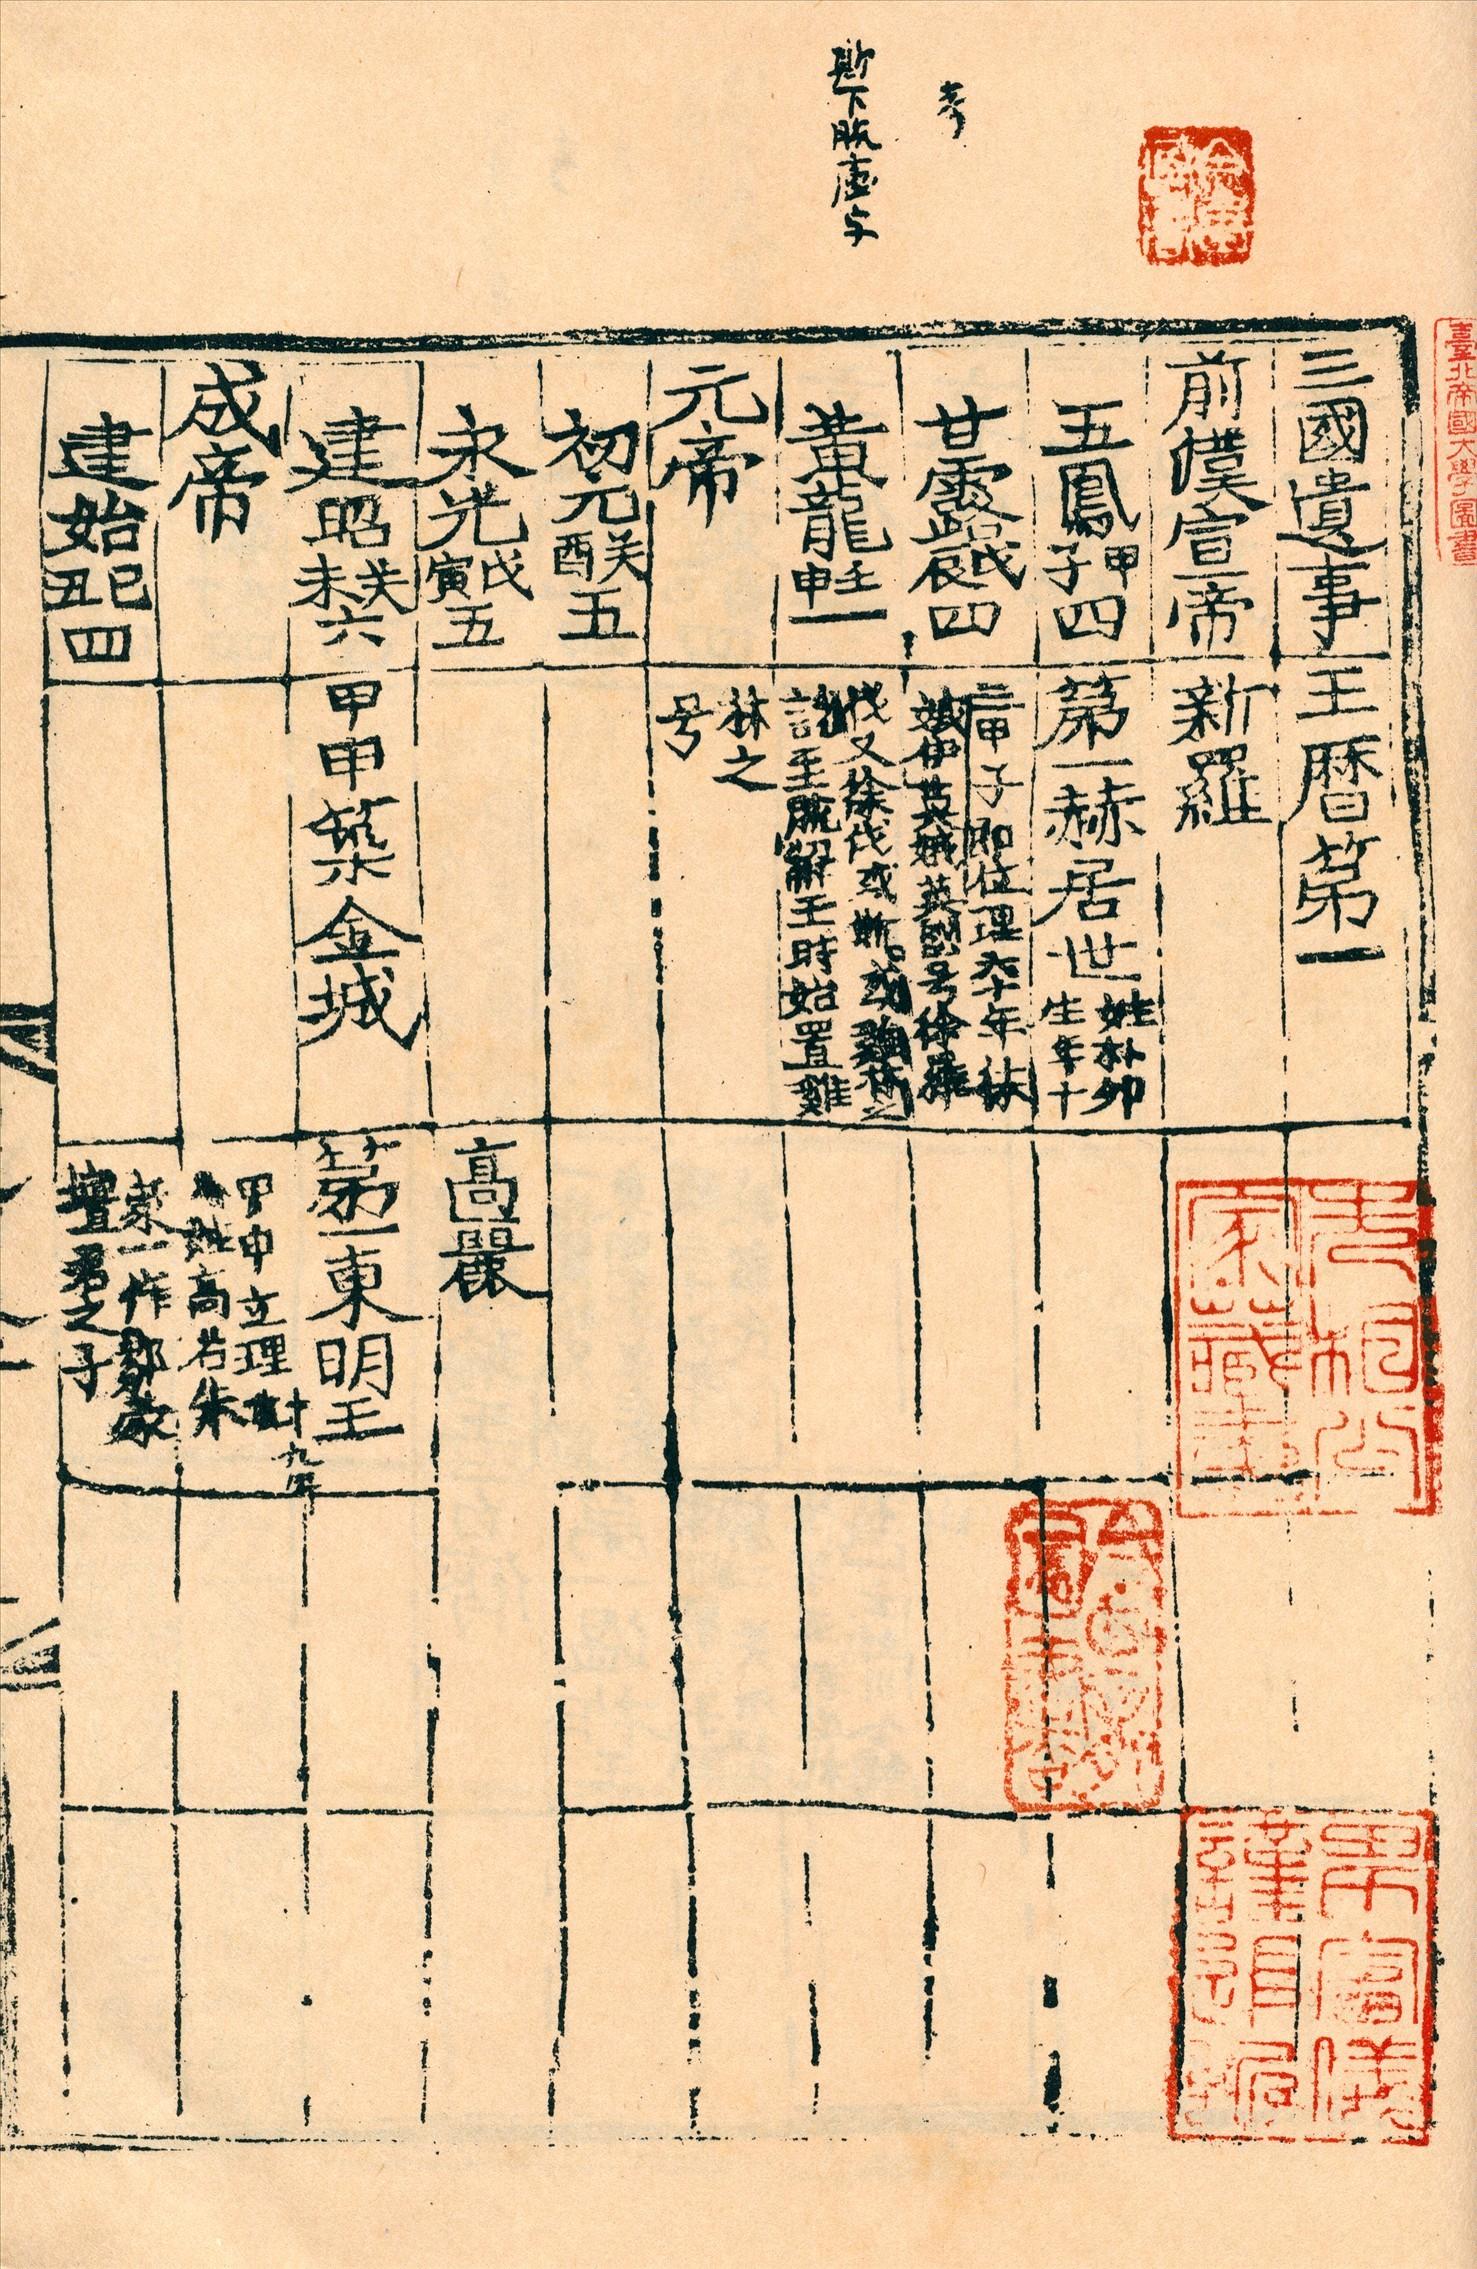 三國遺事王曆第一
前漢宣帝
新羅
五鳳甲子四
第一赫居世姓朴卵
生年十
三甲子即位理六十年
甘露戊辰四
娥伊英娥英國号徐羅
伐又徐伐或斯
黃龍壬申一
說至脫解王時始置雞
林之
号
元帝
初元癸酉五
永光戊寅五
高麗
建昭癸未六
甲申築金城
第一東明王
甲申立理十九年
姓高名朱
成帝
蒙一作鄒蒙
建始己丑四
壇君之子
考
斯下脫盧字
臺北帝國大學圖書